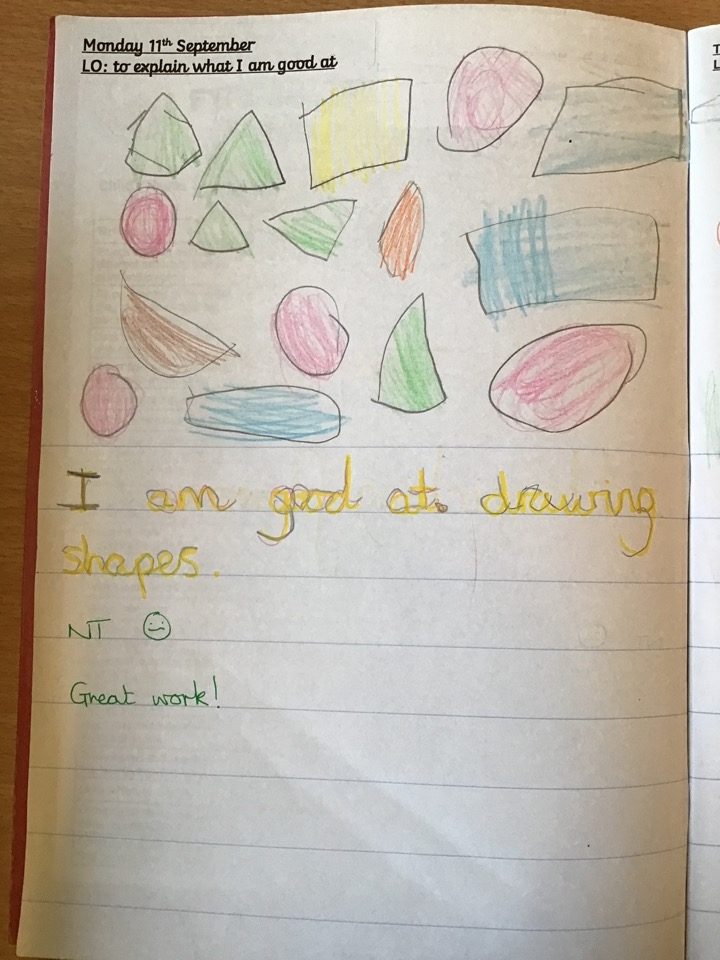 Monday 11th September
LO: to explain what I am good at
I am good at drawing
shapes.
NT
Great work!
T
L